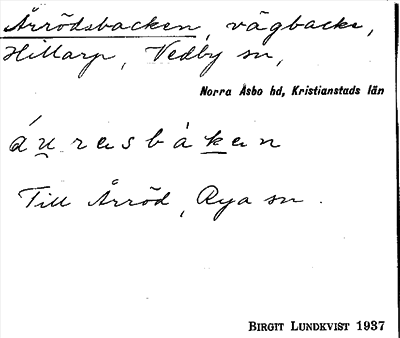 Årrödsbacken, vägbacke,
Hillarp, Vedby sn,
Norra Åsbo hd, Kristianstads län
áu̲rasbàk̲an
Till Årröd, Rya sn.
BIRGIT LUNDKVIST 1937